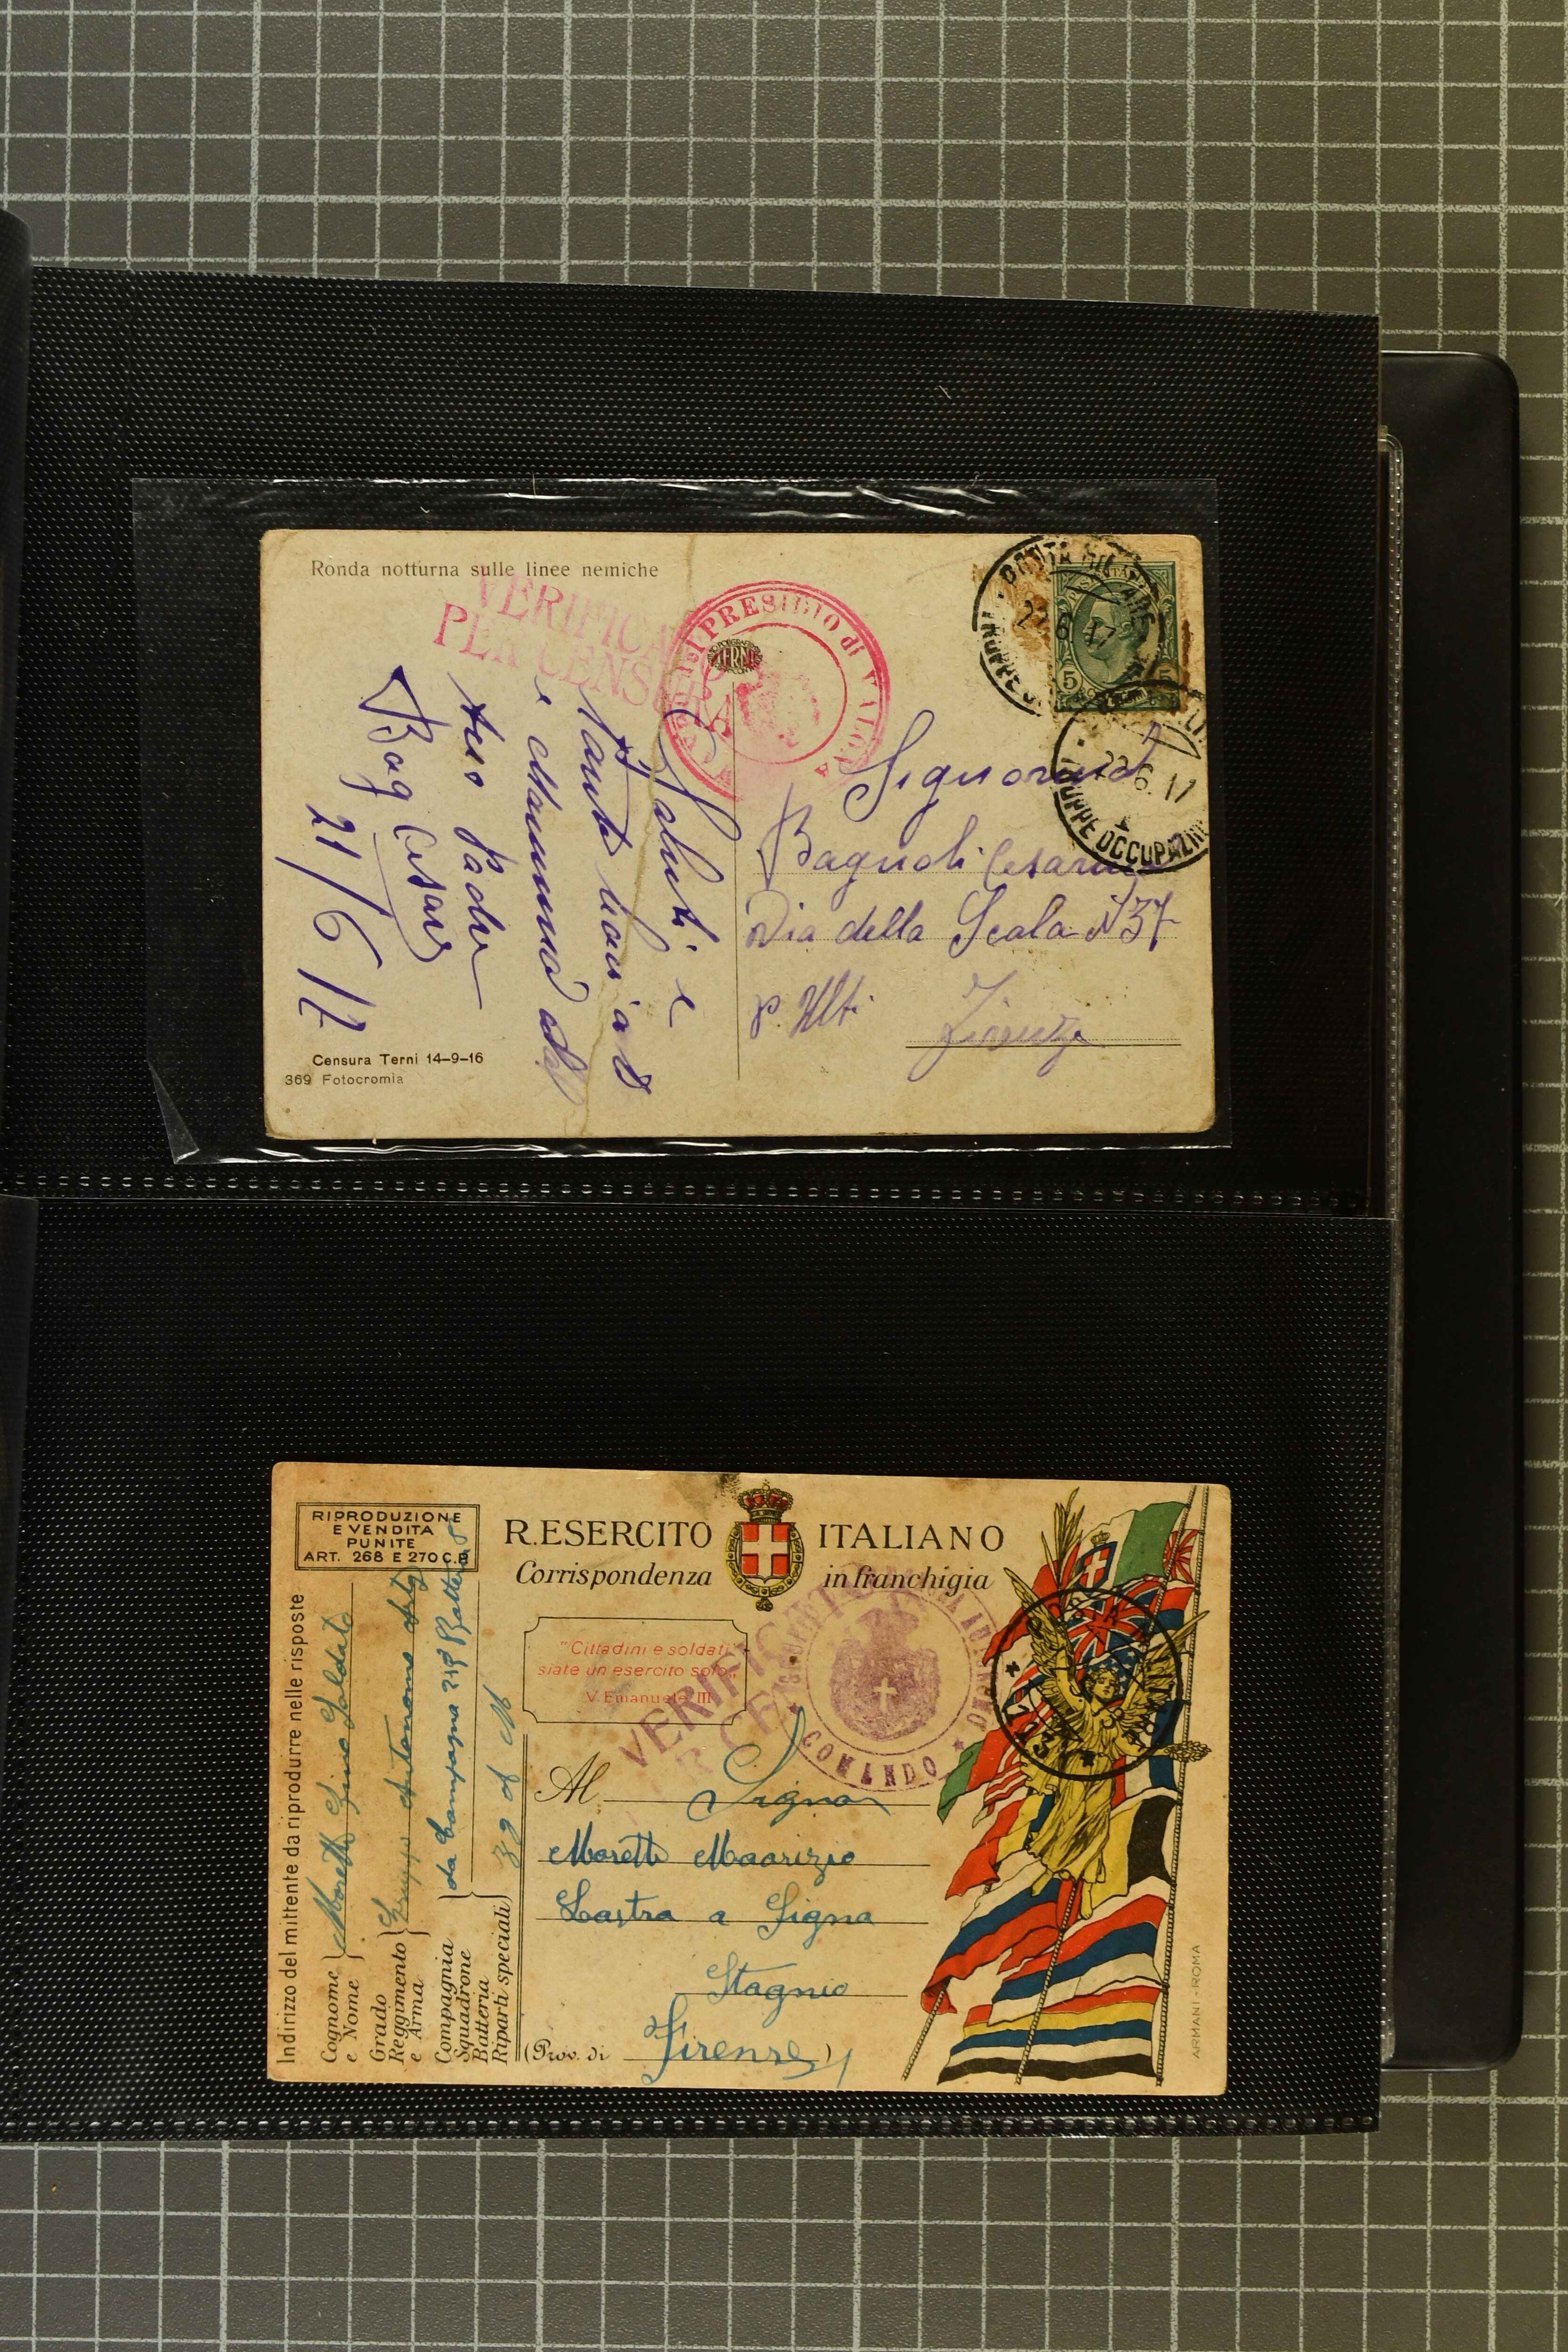 Ronda notturna sulle linee nemiche
VERIFICA
PER CENSURA
PRESIDIO di VALONA
TERNI
POSTA MILITARE
22 6 17
5
22.6.17
TRUPPE OCCUPAZIONE
Saluti e
tanti baci a te
e Mamma dal
tuo Padre
Bag Cesare
21/6/17
Signorina
Bagnoli Cesarina
Via della Scala N 37
Firenze
Censura Terni 14-9-16
369 Fotocromia
RIPRODUZIONE
E VENDITA
PUNITE
ART. 268 E 270 C.P.
R. ESERCITO ITALIANO
Corrispondenza in franchigia
"Cittadini e soldati
siate un esercito solo„
V. Emanuele III
VERIFIC
COMANDO
Al Signor
Moretti Maorizio
Lastra a Signa
Stagnio
(Prov. di Firenze)
Indirizzo del mittente da riprodurre nelle risposte
Cognome
e Nome
Moretti Gino Soldato
Grado
Reggimento
e Arma
Gruppo Autonomo Artg
Compagnia
Squadrone
Batteria
Riparti speciali
da Campagna 219 Batteria
ARMANI - ROMA